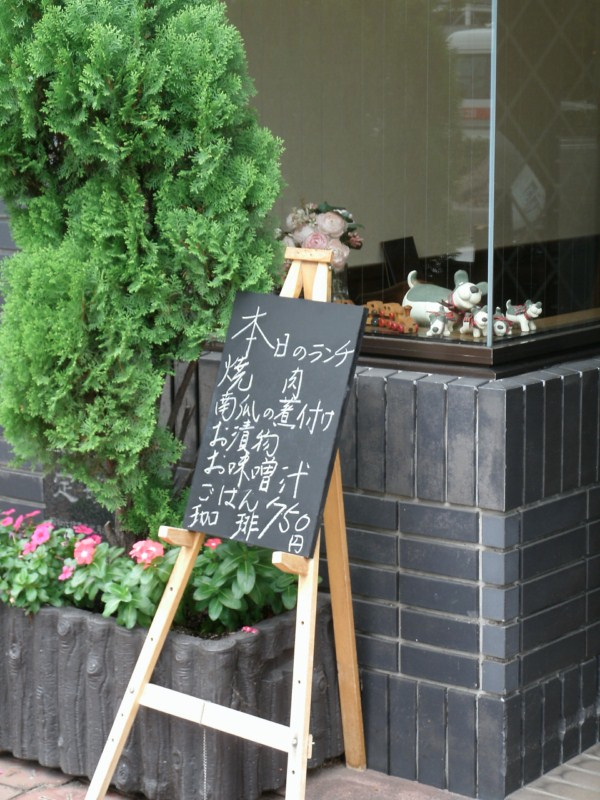 本日のランチ
焼 肉
南瓜の煮付け
お漬物
お味噌汁
ごはん
珈 琲 750円